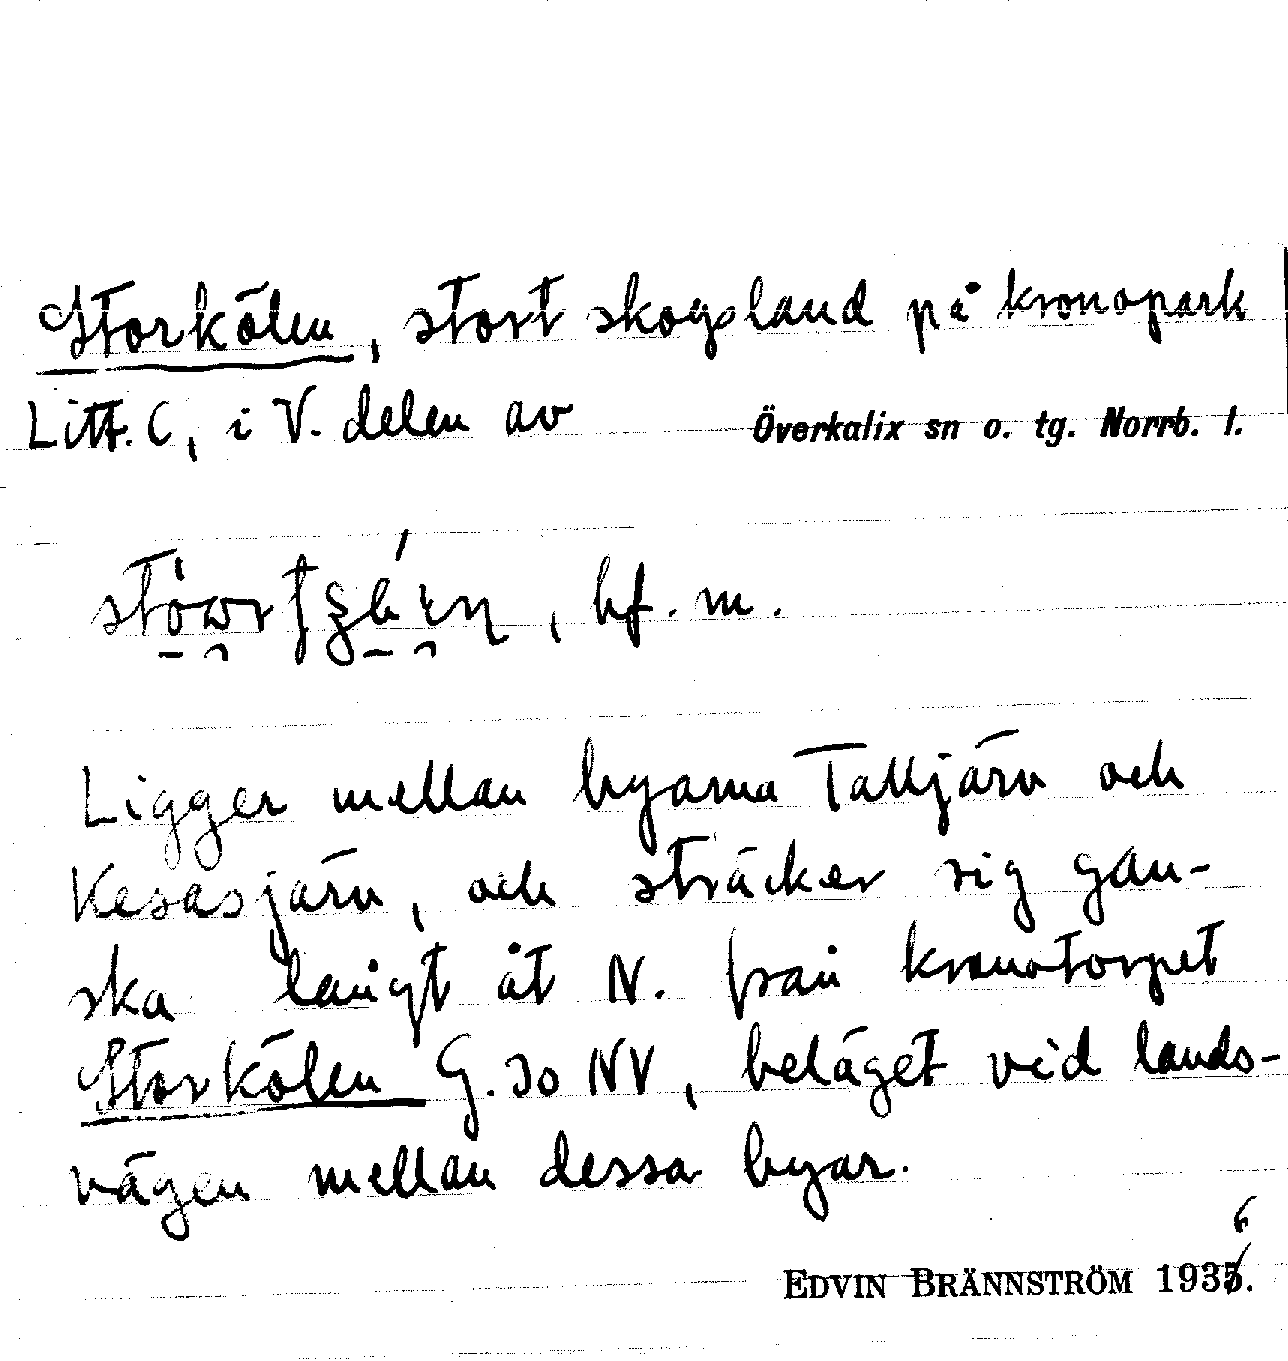 Storkölen, stort skogsland på kronopark
Litt. C, i V. delen av Överkalix sn o. tg. Norrb. l.
, bf. m.
Ligger mellan byarna Talljärv och
Kesasjärv, och sträcker sig gan-
ska långt åt N. från kronotorpet
Storkölen G. 30 NV, beläget vid lands-
vägen mellan dessa byar.
6
EDVIN BRÄNNSTRÖM 1935.